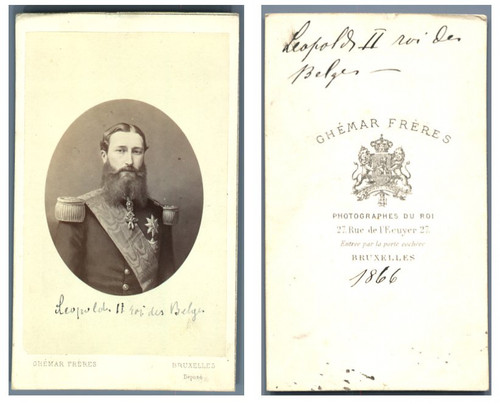 Leopold II roi des Belges
GHÉMAR FRÈRES
BRUXELLES
Déposé
Leopold II roi des
Belges
GHÉMAR FRÈRES
PHOTOGRAPHES DU ROI
27, Rue de l'Ecuyer 27.
Entrée par la porte cochère
BRUXELLES
1866